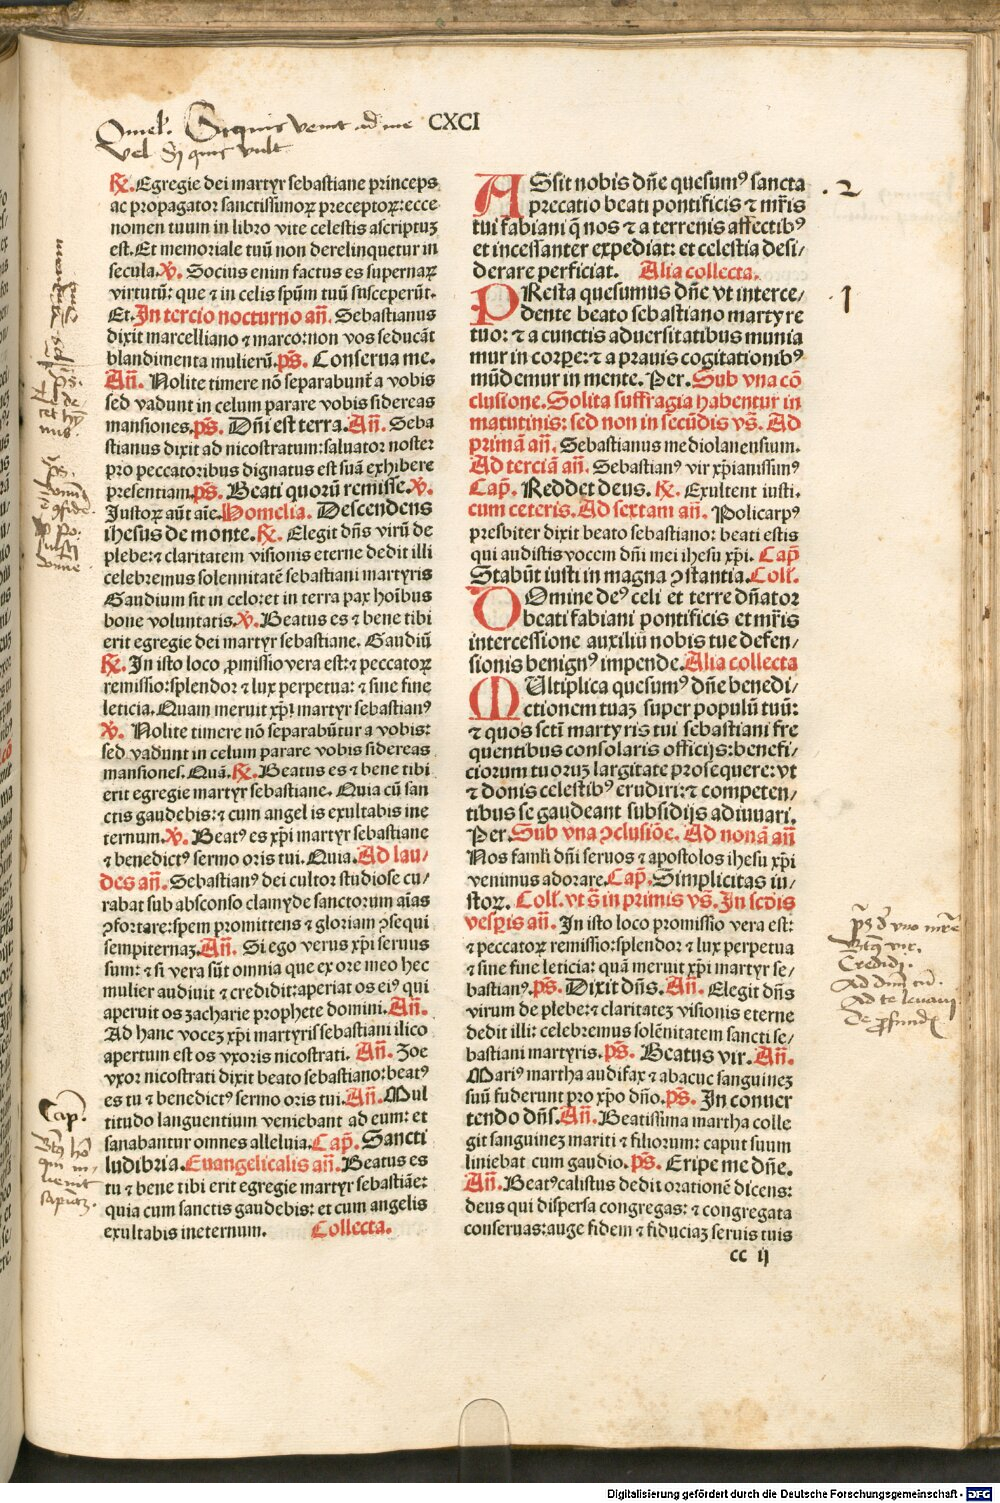 CXCI
Omel. Si quis venit ad me
vel Si quis vult
℟. Egregie dei martyr sebastiane princeps
ac propagator sanctissimoꝝ preceptoꝝ: ecce
nomen tuum in libro vite celestis ascriptuꝫ
est. Et memoriale tuū non derelinquetur in
secula. ℣. Socius enim factus es supernaꝝ
virtutū: que ⁊ in celis spūm tuū susceperūt.
Et. In tercio nocturno añ. Sebastianus
dixit marcelliano ⁊ marco: non vos seducāt
blandimenta mulierū. ps̄. Conserua me.
Añ. Nolite timere nō separabunt̄ a vobis
sed vadunt in celum parare vobis sidereas
mansiones. ps̄. Dn̄i est terra. Añ. Seba
stianus dixit ad nicostratum: saluator noster
pro peccatoribus dignatus est suā exhibere
presentiam. ps̄. Beati quorū remisse. ℣.
Justoꝝ aūt aīe. Homelia. Descendens
ihesus de monte. ℟. Elegit dn̄s virū de
plebe: ⁊ claritatem visionis eterne dedit illi
celebremus solennitatē sebastiani martyris
Gaudium sit in celo: et in terra pax hoībus
bone voluntatis. ℣. Beatus es ⁊ bene tibi
erit egregie dei martyr sebastiane. Gaudiū
℟. In isto loco ꝓmissio vera est: ⁊ peccatoꝝ
remissio: splendor ⁊ lux perpetua: ⁊ sine fine
leticia. Quam meruit xp̄i martyr sebastianꝰ
℣. Nolite timere nō separabūtur a vobis:
sed vadunt in celum parare vobis sidereas
mansiones. Quā. ℟. Beatus es ⁊ bene tibi
erit egregie martyr sebastiane. Quia cū san
ctis gaudebis: ⁊ cum angel is exultabis ine
ternum. ℣. Beatꝰ es xp̄i martyr sebastiane
⁊ benedictꝰ sermo oris tui. Quia. Ad lau/
des añ. Sebastianꝰ dei cultor studiose cu/
rabat sub absconso clamyde sanctorum aīas
ꝯfortare: spem promittens ⁊ gloriam ꝯsequi
sempiternaꝫ. Añ. Si ego verus xp̄i seruus
sum: ⁊ si vera sūt omnia que ex ore meo hec
mulier audiuit ⁊ credidit: aperiat os eiꝰ qui
aperuit os zacharie prophete domini. Añ.
Ad hanc voceꝫ xp̄i martyris sebastiani ilico
apertum est os vxoris nicostrati. Añ. Zoe
vxor nicostrati dixit beato sebastiano: beatꝰ
es tu ⁊ benedictꝰ sermo oris tui. Añ. Mul
titudo languentium veniebant ad eum: et
sanabantur omnes alleluia. Cap̄. Sancti
ludibria. Euangelicalis añ. Beatus es
tu ⁊ bene tibi erit egregie martyr sebastiāe:
quia cum sanctis gaudebis: et cum angelis
exultabis ineternum. Collecta.
ASsit nobis dn̄e quesumꝰ sancta
precatio beati pontificis ⁊ mr̄is
tui fabiani q̄ nos ⁊ a terrenis affectibꝰ
et incessanter expediat: et celestia desi/
derare perficiat. Alia collecta.
PResta quesumus dn̄e vt interce/
dente beato sebastiano martyre
tuo: ⁊ a cunctis aduersitatibus munia
mur in corpe: ⁊ a prauis cogitationibꝰ
mūdemur in mente. Per. Sub vna cō
clusione. Solita suffragia habentur in
matutinis: sed non in secūdis vs̄. Ad
primā añ. Sebastianus mediolanensium.
Ad terciā añ. Sebastianꝰ vir xp̄ianissimꝰ
Cap̄. Reddet deus. ℟. Exultent iusti.
cum ceteris. Ad sextam añ. Policarpꝰ
presbiter dixit beato sebastiano: beati estis
qui audistis vocem dn̄i mei ihesu xp̄i. Cap̄
Stabūt iusti in magna ꝯstantia. Coll̄.
DOmine deꝰ celi et terre dn̄ator
beati fabiani pontificis et mr̄is
intercessione auxiliū nobis tue defen/
sionis benignꝰ impende. Alia collecta
MUltiplica quesumꝰ dn̄e benedi/
ctionem tuaꝫ super populū tuū:
⁊ quos sctī martyris tui sebastiani fre
quentibus consolaris officijs: benefi/
ciorum tuoruꝫ largitate prosequere: vt
⁊ donis celestibꝰ erudiri: ⁊ competen/
tibus se gaudeant subsidijs adiuuari.
Per. Sub vna ꝯclusiōe. Ad nonā añ
Nos famli dn̄i seruos ⁊ apostolos ihesu xp̄i
venimus adorare. Cap̄. Simplicitas iu/
stoꝝ. Coll̄. vt s̄ in primis vs̄. In scd̄is
vesꝑis añ. In isto loco promissio vera est:
⁊ peccatoꝝ remissio: splendor ⁊ lux perpetua
⁊ sine fine leticia: quā meruit xp̄i martyr se/
bastianꝰ. ps̄. Dixit dn̄s. Añ. Elegit dn̄s
virum de plebe: ⁊ claritateꝫ visionis eterne
dedit illi: celebremus solēnitatem sancti se/
bastiani martyris. ps̄. Beatus vir. Añ.
Mariꝰ martha audifax ⁊ abacuc sanguineꝫ
suū fuderunt pro xp̄o dn̄o. ps̄. In conuer
tendo dn̄s. Añ. Beatissima martha colle
git sanguineꝫ mariti ⁊ filiorum: caput suum
liniebat cum gaudio. ps̄. Eripe me dn̄e.
Añ. Beatꝰ calistus dedit orationē dicens:
deus qui dispersa congregas: ⁊ congregata
conseruas: auge fidem ⁊ fiduciaꝫ seruis tuis
cc ij
. 2
. 1
Cap̄.
Credidi.
Ad te levavi
Digitalisierung gefördert durch die Deutsche Forschungsgemeinschaft - DFG